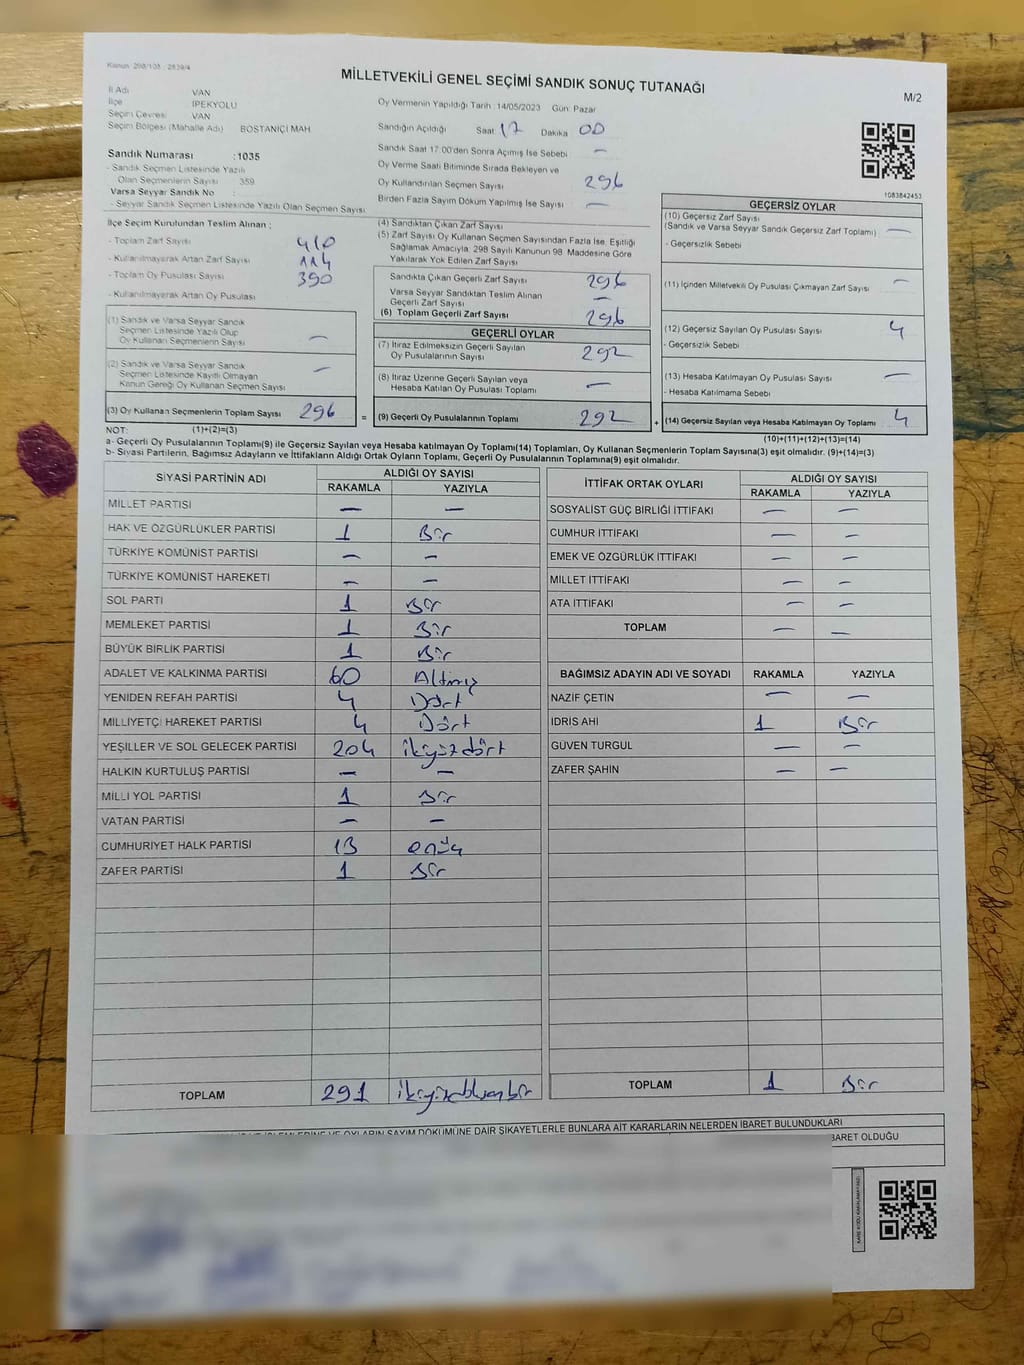 Kanun 298/105 : 2839/4
MİLLETVEKİLİ GENEL SEÇİMİ SANDIK SONUÇ TUTANAĞI
M/2
İl Adı VAN
İlçe İPEKYOLU
Seçim Çevresi VAN
Seçim Bölgesi (Mahalle Adı) BOSTANİÇİ MAH
Oy Vermenin Yapıldığı Tarih :14/05/2023 Gün: Pazar
Sandığın Açıldığı Saat 17 Dakika 00
Sandık Saat 17.00'den Sonra Açımış İse Sebebi —
Oy Verme Saati Bitiminde Sırada Bekleyen ve
Oy Kullandırılan Seçmen Sayısı 296
Birden Fazla Sayım Döküm Yapılmış İse Sayısı —
1083842453
Sandık Numarası :1035
- Sandık Seçmen Listesinde Yazılı
Olan Seçmenlerin Sayısı 359
Varsa Seyyar Sandık No :
- Seyyar Sandık Seçmen Listesinde Yazılı Olan Seçmen Sayısı
İlçe Seçim Kurulundan Teslim Alınan ;
- Toplam Zarf Sayısı 410
- Kullanılmayarak Artan Zarf Sayısı 114
- Toplam Oy Pusulası Sayısı 390
- Kullanılmayarak Artan Oy Pusulası
(1) Sandık ve Varsa Seyyar Sandık
Seçmen Listesinde Yazılı Olup
Oy Kullanan Seçmenlerin Sayısı —
(2) Sandık ve Varsa Seyyar Sandık
Seçmen Listesinde Kayıtlı Olmayan
Kanun Gereği Oy Kullanan Seçmen Sayısı —
(3) Oy Kullanan Seçmenlerin Toplam Sayısı 296 =
(4) Sandıktan Çıkan Zarf Sayısı
(5) Zarf Sayısı Oy Kullanan Seçmen Sayısından Fazla İse, Eşitliği
Sağlamak Amacıyla; 298 Sayılı Kanunun 98. Maddesine Göre
Yakılarak Yok Edilen Zarf Sayısı
Sandıkta Çıkan Geçerli Zarf Sayısı 296
Varsa Seyyar Sandıktan Teslim Alınan
Geçerli Zarf Sayısı —
(6) Toplam Geçerli Zarf Sayısı 296
GEÇERLİ OYLAR
(7) İtiraz Edilmeksizin Geçerli Sayılan
Oy Pusulalarının Sayısı 292
(8) İtiraz Üzerine Geçerli Sayılan veya
Hesaba Katılan Oy Pusulası Toplamı —
(9) Geçerli Oy Pusulalarının Toplamı 292 +
GEÇERSİZ OYLAR
(10) Geçersiz Zarf Sayısı
(Sandık ve Varsa Seyyar Sandık Geçersiz Zarf Toplamı) —
- Geçersizlik Sebebi
(11) İçinden Milletvekili Oy Pusulası Çıkmayan Zarf Sayısı —
(12) Geçersiz Sayılan Oy Pusulası Sayısı 4
- Geçersizlik Sebebi
(13) Hesaba Katılmayan Oy Pusulası Sayısı —
- Hesaba Katılmama Sebebi
(14) Geçersiz Sayılan veya Hesaba Katılmayan Oy Toplamı 4
NOT: (1)+(2)=(3)
(10)+(11)+(12)+(13)=(14)
a- Geçerli Oy Pusulalarının Toplamı(9) ile Geçersiz Sayılan veya Hesaba katılmayan Oy Toplamı(14) Toplamları, Oy Kullanan Seçmenlerin Toplam Sayısına(3) eşit olmalıdır. (9)+(14)=(3)
b- Siyasi Partilerin, Bağımsız Adayların ve İttifakların Aldığı Ortak Oyların Toplamı, Geçerli Oy Pusulalarının Toplamına(9) eşit olmalıdır.
SİYASİ PARTİNİN ADI ALDIĞI OY SAYISI
RAKAMLA YAZIYLA
MİLLET PARTİSİ — —
HAK VE ÖZGÜRLÜKLER PARTİSİ 1 Bir
TÜRKİYE KOMÜNİST PARTİSİ — —
TÜRKİYE KOMÜNİST HAREKETİ — —
SOL PARTİ 1 Bir
MEMLEKET PARTİSİ 1 Bir
BÜYÜK BİRLİK PARTİSİ 1 Bir
ADALET VE KALKINMA PARTİSİ 60 Altmış
YENİDEN REFAH PARTİSİ 4 Dört
MİLLİYETÇİ HAREKET PARTİSİ 4 Dört
YEŞİLLER VE SOL GELECEK PARTİSİ 204 ikiyüzdört
HALKIN KURTULUŞ PARTİSİ — —
MİLLİ YOL PARTİSİ 1 Bir
VATAN PARTİSİ — —
CUMHURİYET HALK PARTİSİ 13 onüç
ZAFER PARTİSİ 1 Bir
TOPLAM 291 ikiyüzdoksanbir
İTTİFAK ORTAK OYLARI ALDIĞI OY SAYISI
RAKAMLA YAZIYLA
SOSYALİST GÜÇ BİRLİĞİ İTTİFAKI — —
CUMHUR İTTİFAKI — —
EMEK VE ÖZGÜRLÜK İTTİFAKI — —
MİLLET İTTİFAKI — —
ATA İTTİFAKI — —
TOPLAM — —
BAĞIMSIZ ADAYIN ADI VE SOYADI RAKAMLA YAZIYLA
NAZİF ÇETİN — —
İDRİS AHİ 1 Bir
GÜVEN TURGUL — —
ZAFER ŞAHİN — —
TOPLAM 1 Bir
VE OYLARIN SAYIM DÖKÜMÜNE DAİR ŞİKAYETLERLE BUNLARA AİT KARARLARIN NELERDEN İBARET BULUNDUKLARI
İBARET OLDUĞU